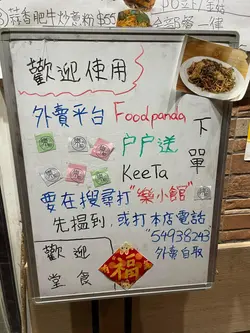 蒜香肥牛炒意粉 $55
全部單一律
歡迎使用
外賣平台 Foodpanda
戶戶送
KeeTa
下單
要在搜尋打"樂小館"
先搵到, 或打本店電話
"54938243"
外賣自取
歡迎
堂食
福